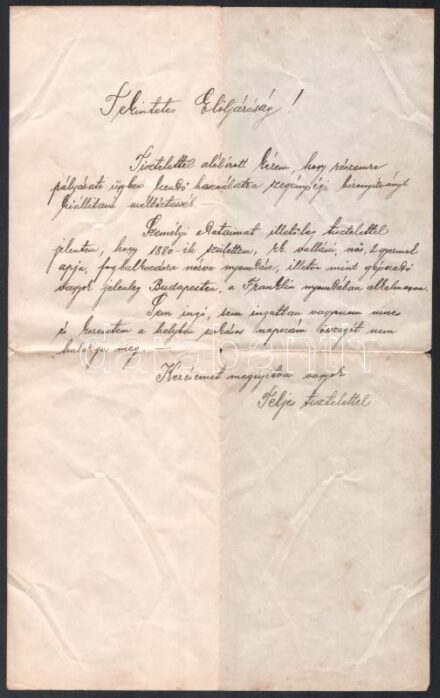 Tekintetes Elöljáróság!
Tisztelettel alólirott kérem, hogy részemre
pályázati ügyben leendő használatra szegénységi bizonyitványt
kiállitani méltóztassék.
Személyi adataimat illetőleg tisztelettel
jelentem, hogy 1880-ik születtem, vallású, nős, 2 gyermek
apja, foglalkozásra nézve nyomdász, illetve mint gépszedő
vagyok jelenleg Budapesten, a Franklin nyomdában alkalmazva.
Sem ingó, sem ingatlan vagyonom nincs
és keresetem a helyben szokásos napszám összegét nem
haladja meg.
darabanth
Kérésemet megujitva vagyok
Teljes tisztelettel.